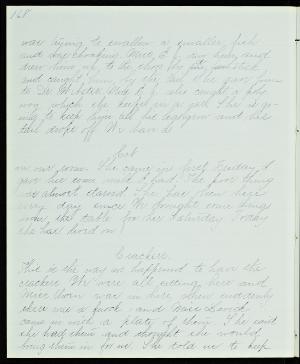 168
was trying to swallow a smaller fish
and was choking. Miss E. J. saw him and
drew him up to the shore by
and caught him by the tail. She gave him
to Dr. Webster. Miss E. J. also caught a polly
wog which she keeps in a pail. She is go-
ing to keep him till his legs grow and his
tail drops off. We have a
Cat
in our room. She came in first Tuesday. I
gave her some meat I had. The poor thing
was almost starved. She has been here
every day since. We brought some things
from the table for her Saturday. Today
she has lived on
Crackers.
This is the way we happened to have the
crackers. We were all sitting here and
Miss was in here, when suddenly
there was a knock and Miss
came in with a plate of them. She said
she had them and thought she would
bring them in for us. She told us to keep